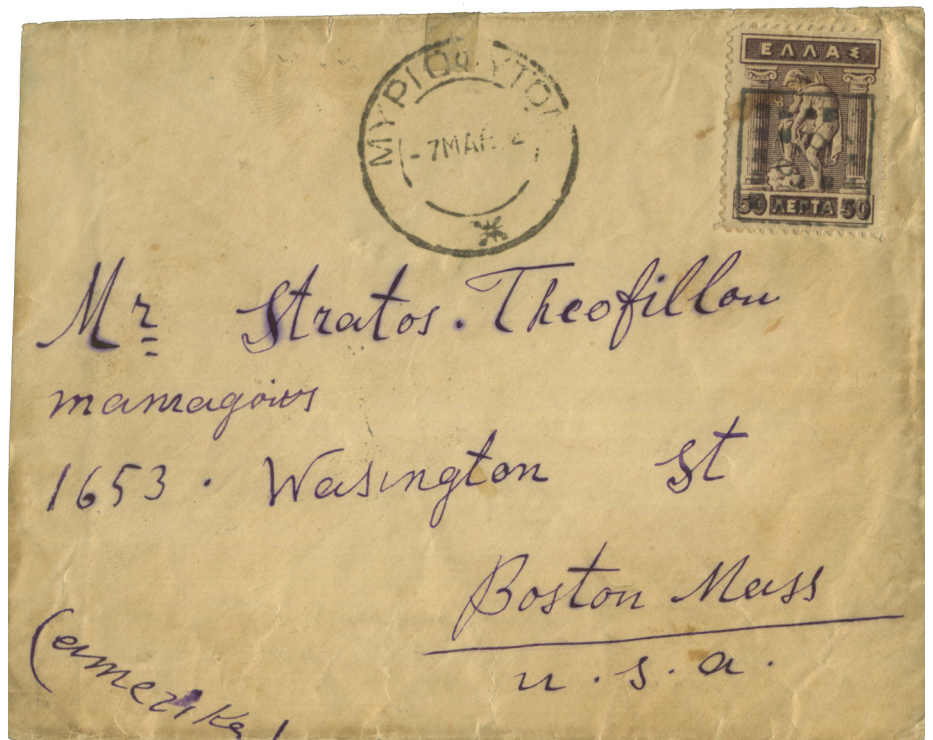 ΜΥΡΙΟΦΥΤΟΝ
-7 ΜΑΡ. 2
ΕΛΛΑΣ
50 ΛΕΠΤΑ 50
Mr Stratos. Theofillou
mamagoius
1653. Wasington St
Boston Mass
u.s.a.
(amerika)